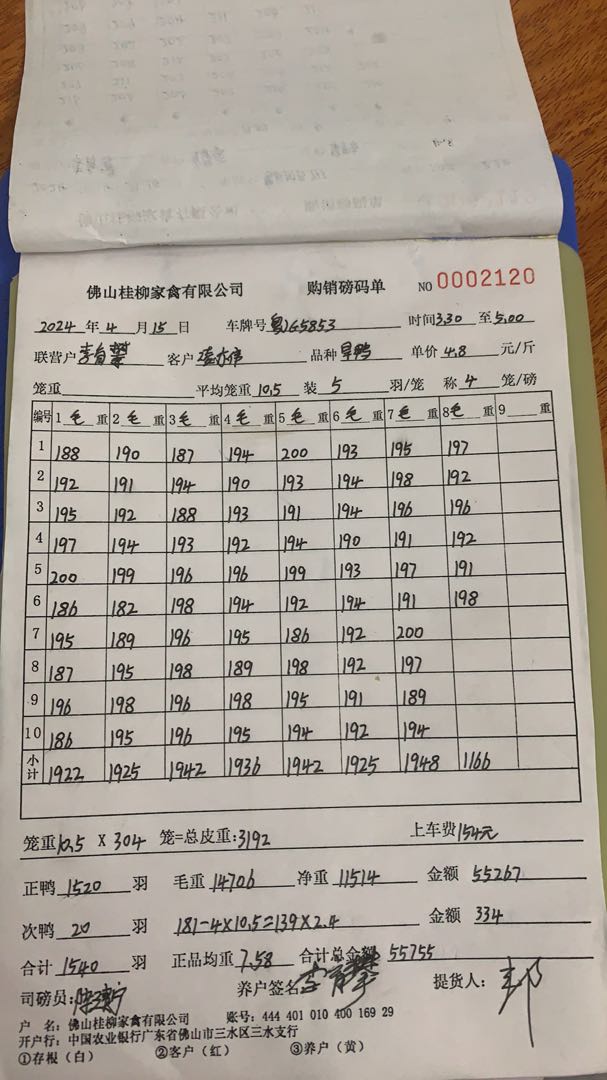 佛山桂柳家禽有限公司 购销磅码单 NO 0002120
2024 年 4 月 15 日 车牌号 粤JG5853 时间 3.30 至 5.00
联营户 客户 品种 旱鸭 单价 4.8 元/斤
笼重 平均笼重 10.5 装 5 羽/笼 称 4 笼/磅
编号 1 毛 重 2 毛 重 3 毛 重 4 毛 重 5 毛 重 6 毛 重 7 毛 重 8 毛 重 9 重
1 188 190 187 194 200 193 195 197
2 192 191 194 190 193 194 198 192
3 195 192 188 193 191 194 196 196
4 197 194 193 192 194 190 191 192
5 200 199 196 196 199 193 197 191
6 186 182 198 194 192 194 191 198
7 195 189 196 195 186 192 200
8 187 195 198 189 198 192 197
9 196 198 196 198 195 191 189
10 186 195 196 195 194 192 194
小计 1922 1925 1942 1936 1942 1925 1948 1166
笼重 10.5 X 304 笼=总皮重:3192 上车费 154元
正鸭 1520 羽 毛重 14706 净重 11514 金额 55267
次鸭 20 羽 181-4×10.5=139×2.4 金额 334
合计 1540 羽 正品均重 7.58 合计总金额 55755
司磅员: 养户签名 提货人:
户 名: 佛山桂柳家禽有限公司 账号: 444 401 010 400 169 29
开户行: 中国农业银行广东省佛山市三水区三水支行
①存根（白） ②客户（红） ③养户（黄）